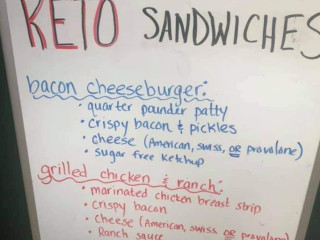 KETO SANDWICHES
bacon cheeseburger:
• quarter pounder patty
• crispy bacon & pickles
• cheese (American, swiss, OR provolone)
• sugar free ketchup
grilled chicken & ranch:
• marinated chicken breast strip
• crispy bacon
• cheese (American, swiss, OR provolone)
• Ranch sauce